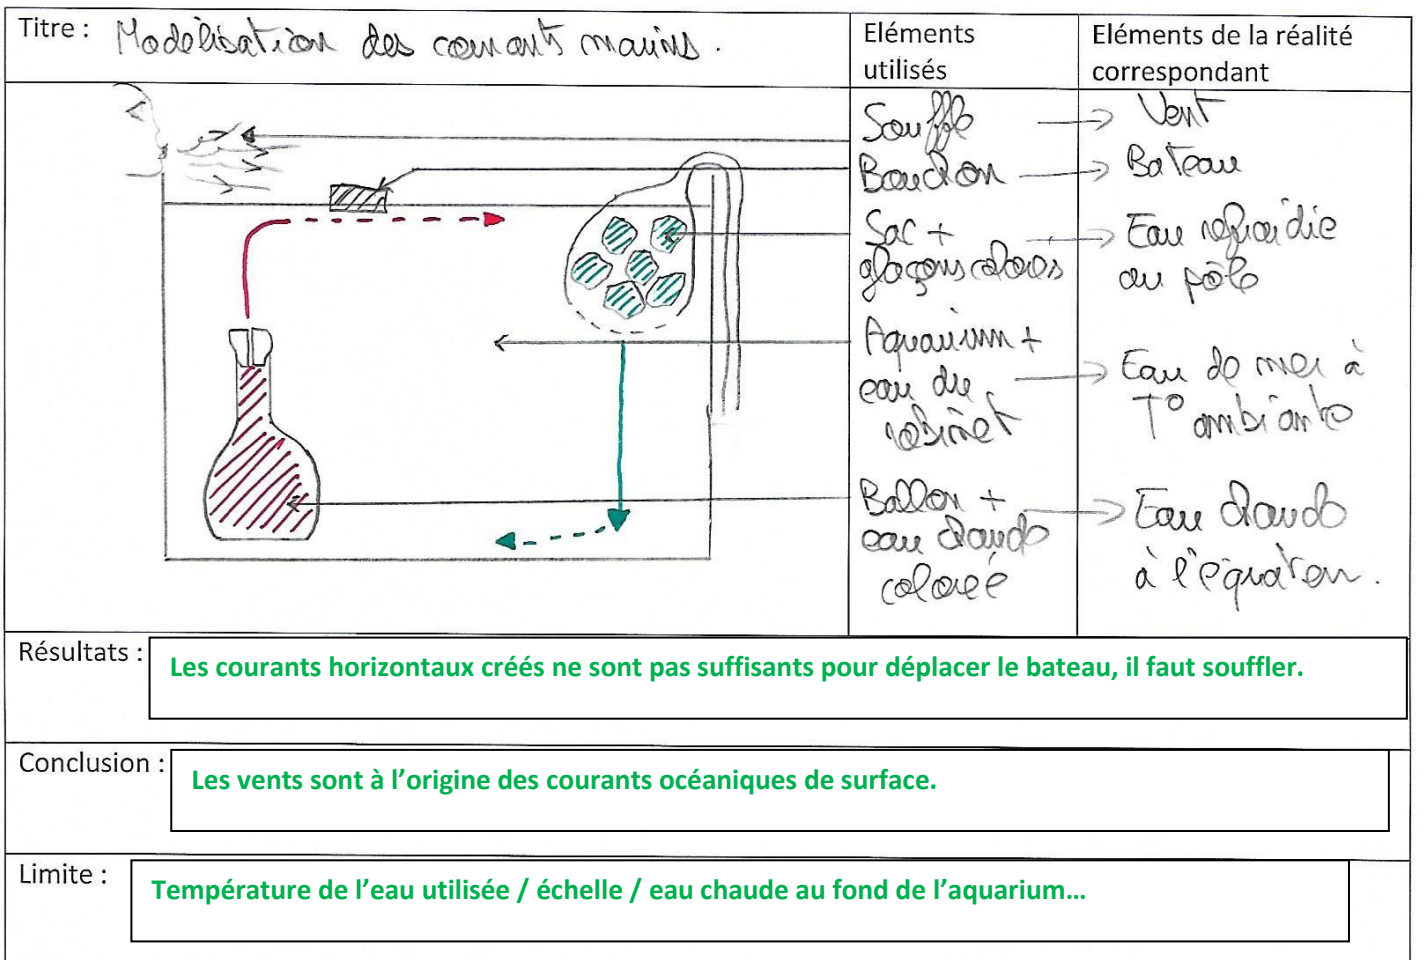 Titre : Modélisation des courants marins.
Eléments
utilisés
Eléments de la réalité
correspondant
Souffle → Vent
Bouchon → Bateau
Sac +
glaçons colorés
→ Eau refroidie
au pôle
Aquarium +
eau du
robinet
→ Eau de mer à
T° ambiante
Ballon +
eau chaude
colorée
→ Eau chaude
à l'équateur.
Résultats : Les courants horizontaux créés ne sont pas suffisants pour déplacer le bateau, il faut souffler.
Conclusion : Les vents sont à l'origine des courants océaniques de surface.
Limite : Température de l'eau utilisée / échelle / eau chaude au fond de l'aquarium…